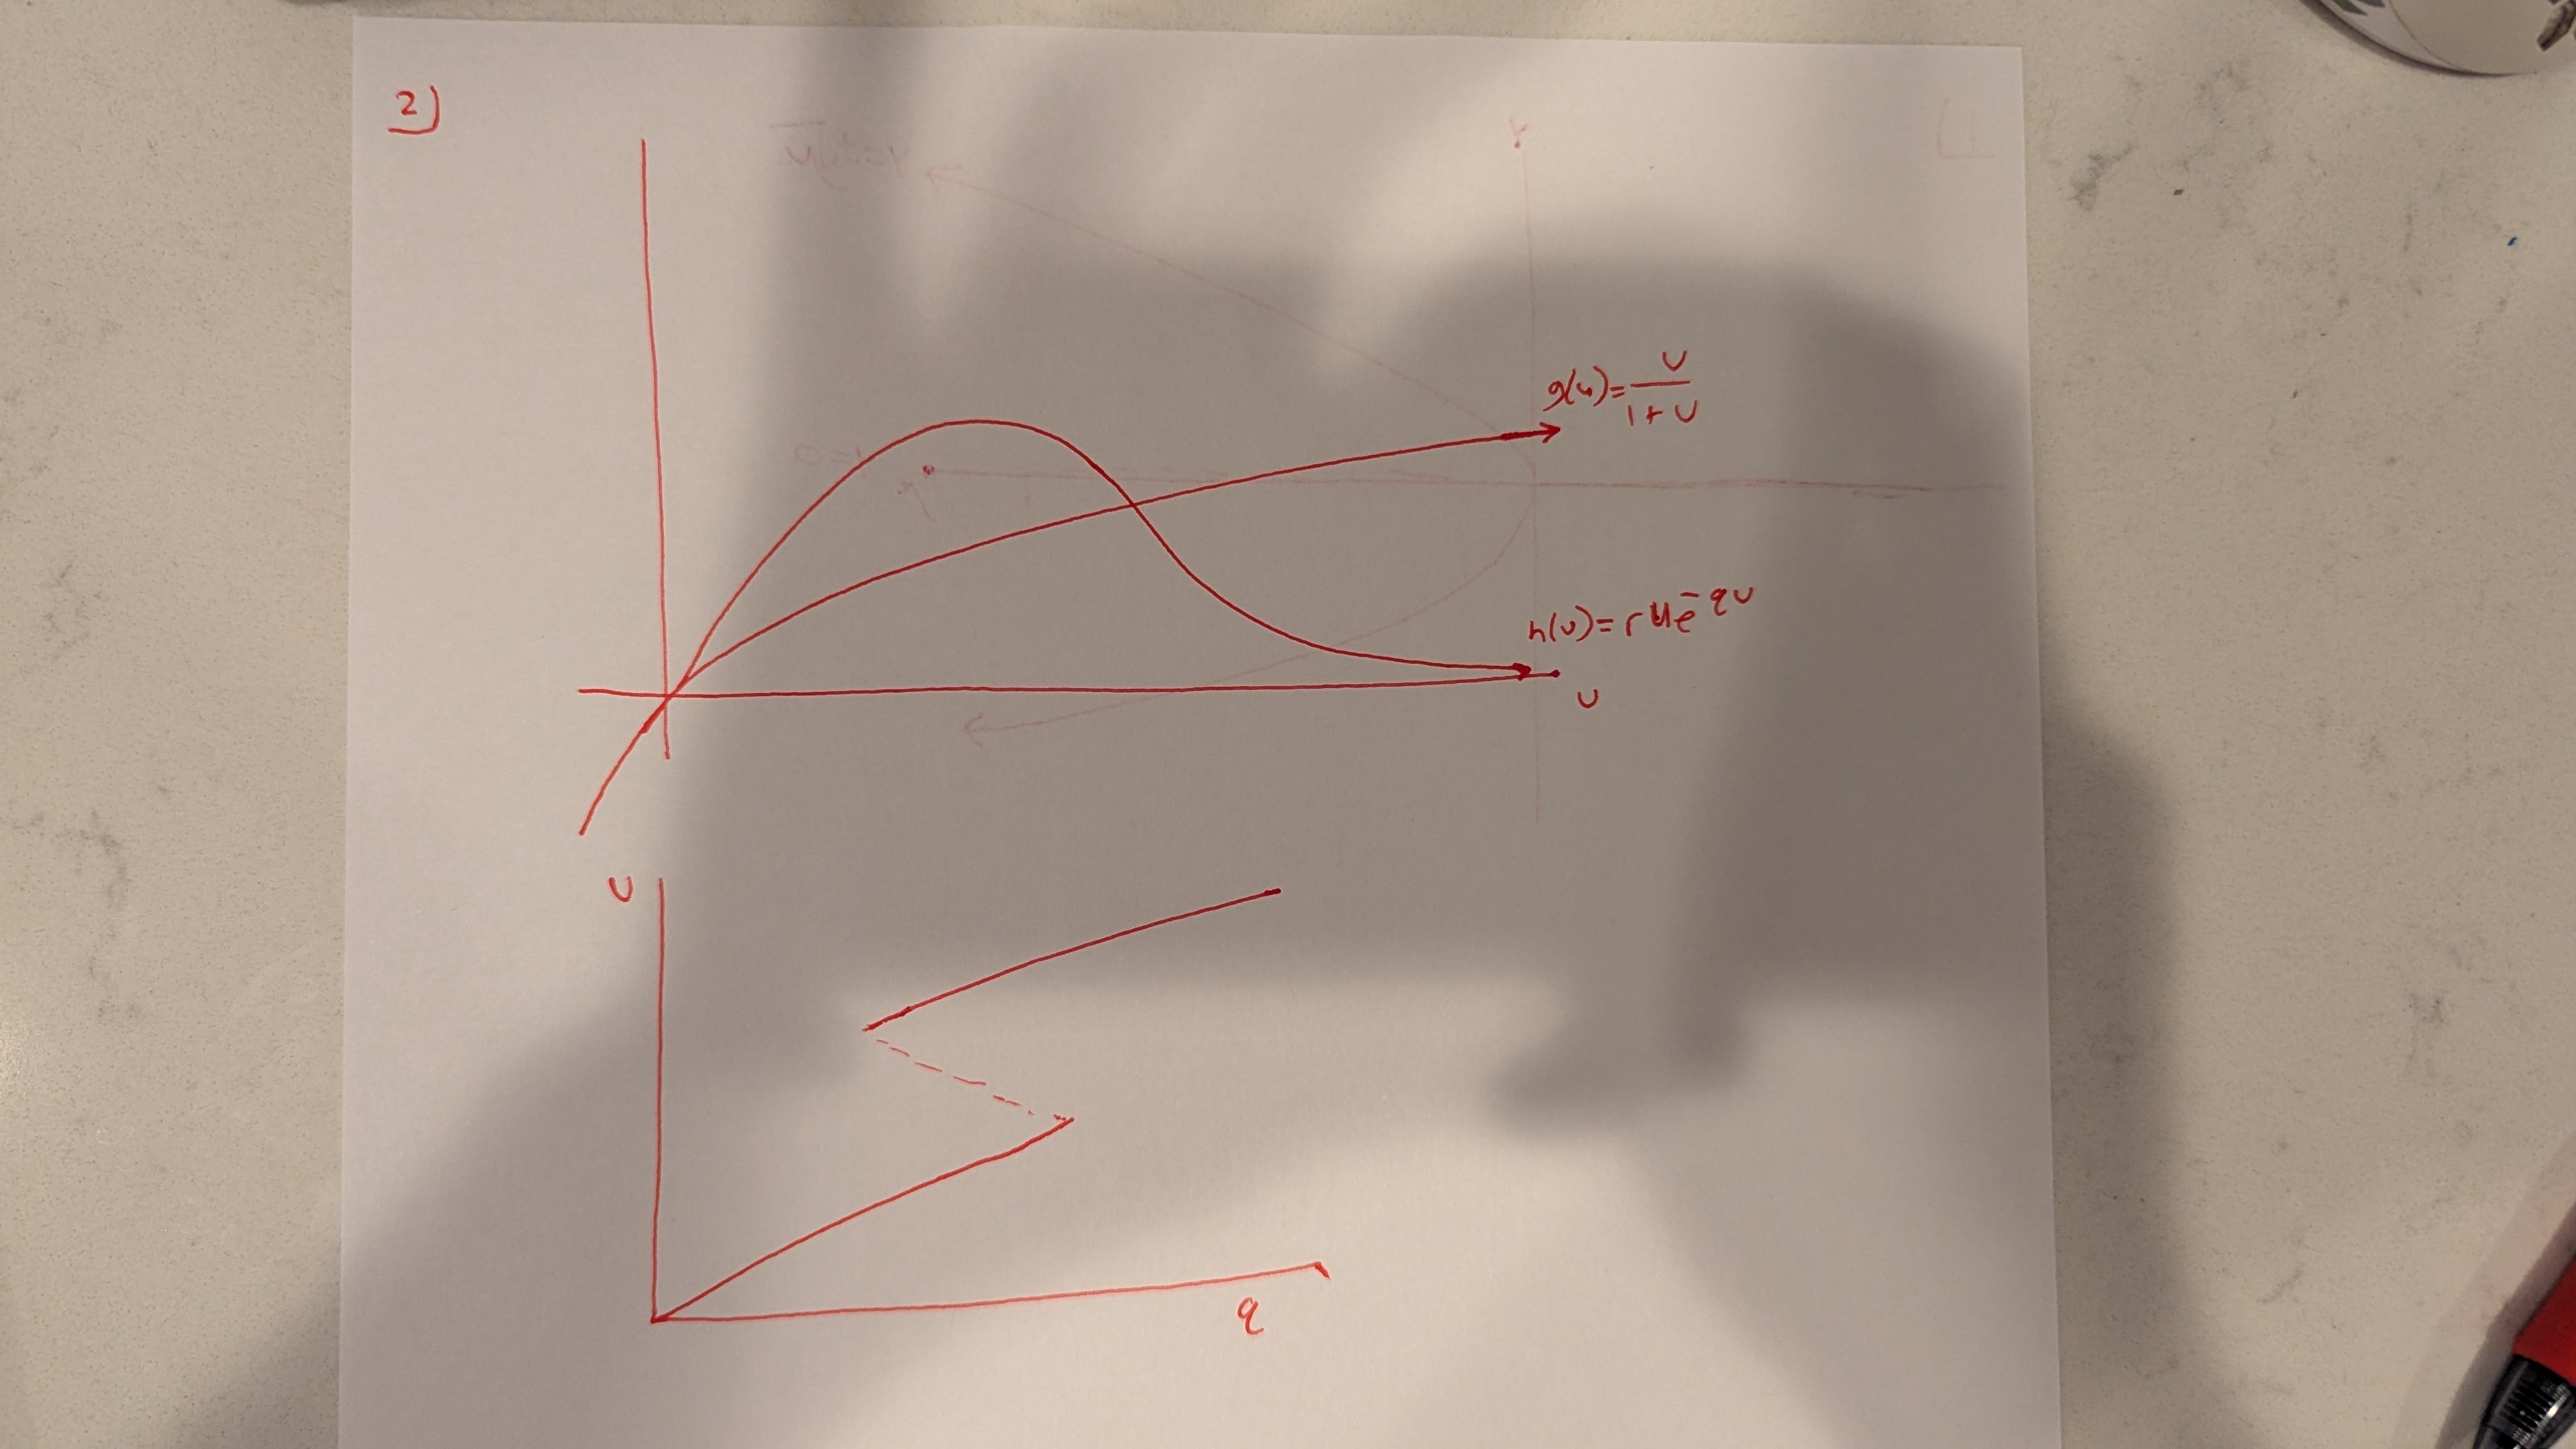 2)
g(u)= U / 1+U
h(u)= rUe^-qU
U
U
q